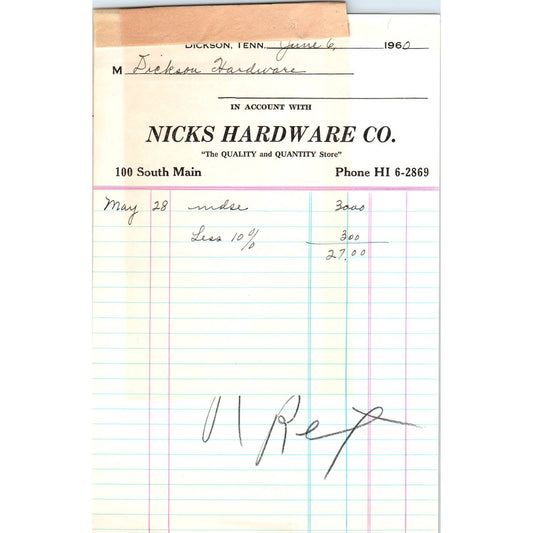 DICKSON, TENN. June 6, 1960
M Dickson Hardware
IN ACCOUNT WITH
NICKS HARDWARE CO.
"The QUALITY and QUANTITY Store"
100 South Main Phone HI 6-2869
May 28 mdse 3000
Less 10% 300
27.00